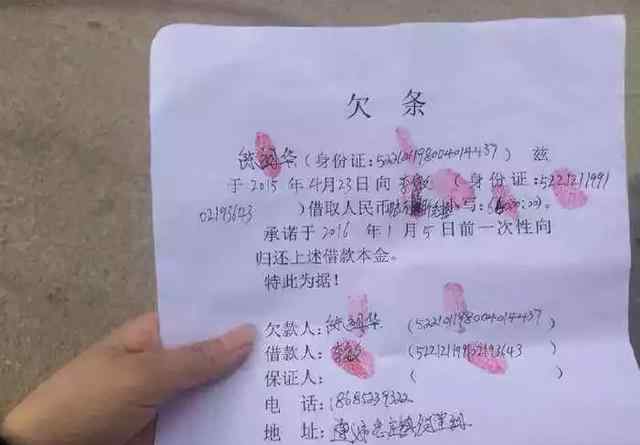 欠 条
（身份证：522101198004014437）兹
于 2015 年4月23日向李敏（身份证：5221211991
02193643 ）借取人民币 小写：
承诺于 2016 年1月5日前一次性向
归还上述借款本金。
特此为据！
欠款人： （522101198004014437
借款人：李敏（522121199102193643
保证人： （
电 话：18685239322
地 址：